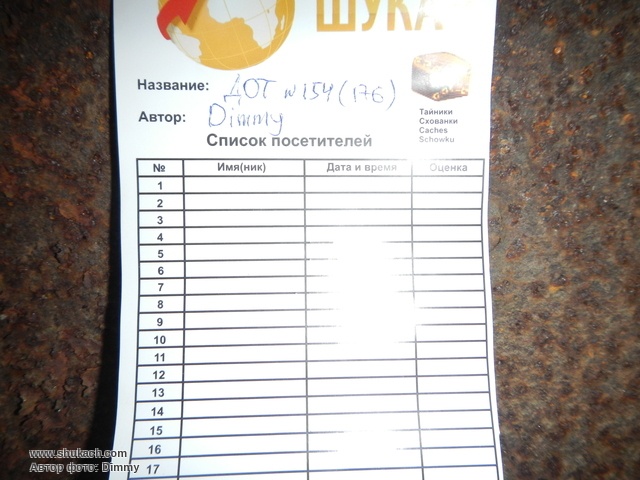 ШУКА
Название: ДОТ №154(176)
Автор: Dimmy
Тайники
Схованки
Caches
Schowku
Список посетителей
№ Имя(ник) Дата и время Оценка
1
2
3
4
5
6
7
8
9
10
11
12
13
14
15
16
17
www.shukach.com
Автор фото: Dimmy